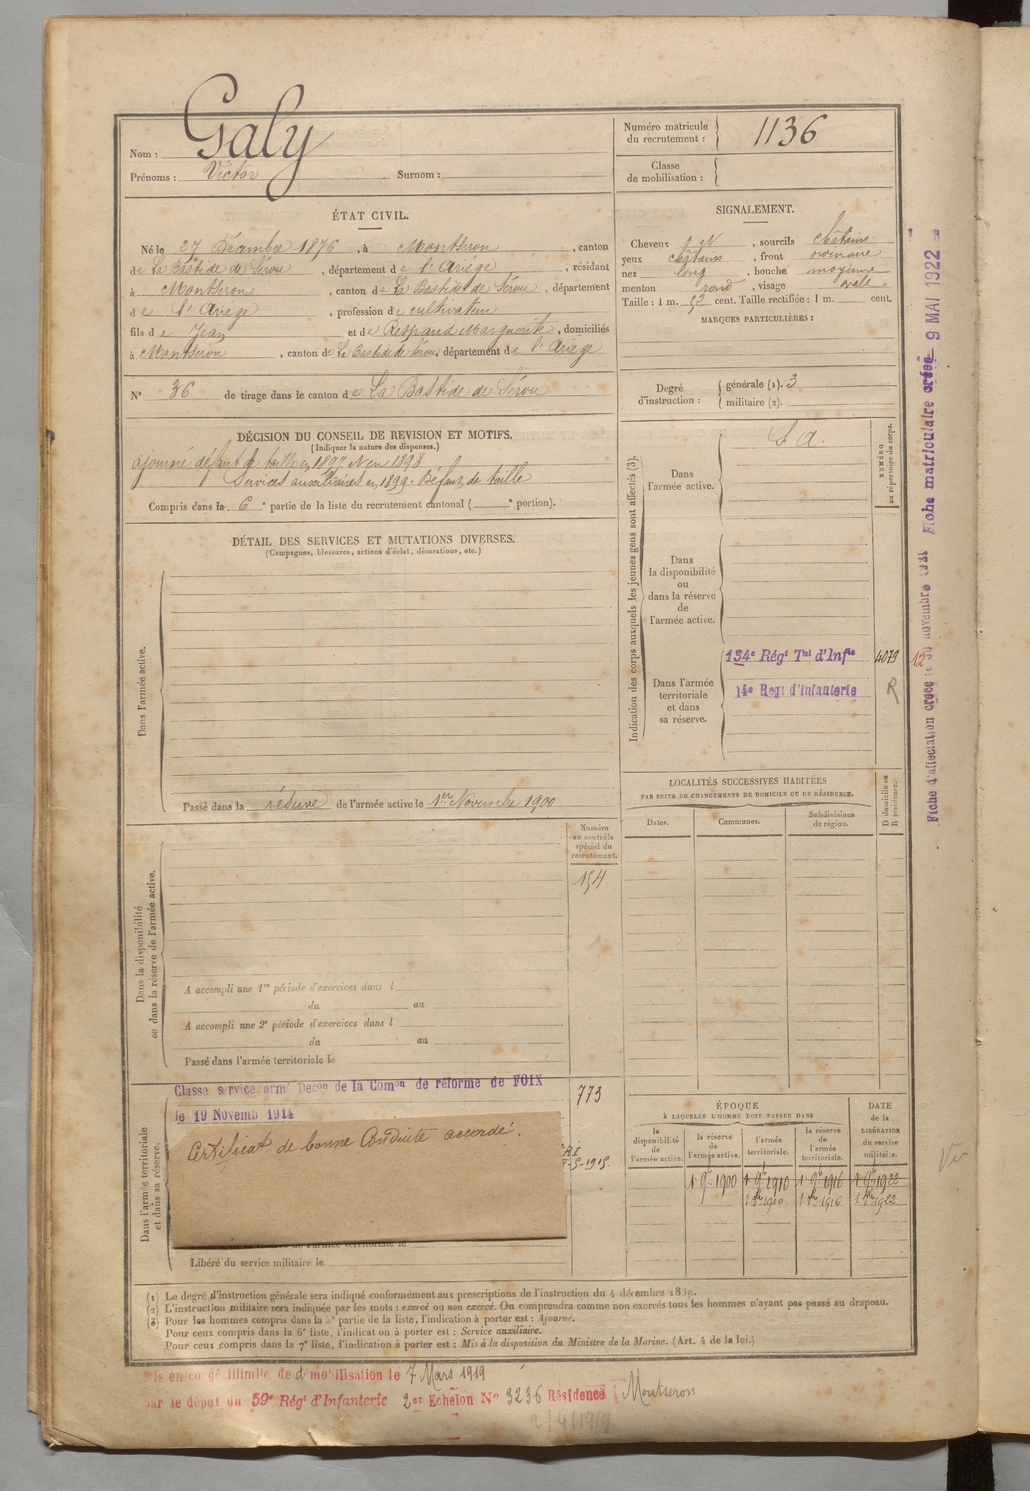 Nom : Galy
Prénoms : Victor Surnom :
Numéro matricule du recrutement : 1136
Classe de mobilisation :
ÉTAT CIVIL.
Né le 27 Décembre 1876, à Montseron, canton
de La Bastide de Sérou, département de l'Ariège, résidant
à Montseron, canton de La Bastide de Sérou, département
d e l'Ariège, profession de cultivateur
fils d e Jean et de Respaud Marguerite, domiciliés
à Montseron, canton de La Bastide de Sérou, département de l'Ariège
N° 36 de tirage dans le canton de La Bastide de Sérou
SIGNALEMENT.
Cheveux N, sourcils châtains
yeux châtains, front ordinaire
nez long, bouche moyenne
menton rond, visage ovale
Taille : 1 m. 52 cent. Taille rectifiée : 1 m. cent.
MARQUES PARTICULIÈRES :
Degré d'instruction : générale (1). 3
militaire (2).
DÉCISION DU CONSEIL DE REVISION ET MOTIFS.
(Indiquer la nature des dispenses.)
ajourné défaut de taille en 1897 et en 1898
Services auxiliaires en 1899. Défaut de taille
Compris dans la 6e partie de la liste du recrutement cantonal ( e portion).
DÉTAIL DES SERVICES ET MUTATIONS DIVERSES.
(Campagnes, blessures, actions d'éclat, décorations, etc.)
Dans l'armée active.
Passé dans la réserve de l'armée active le 1er Novembre 1900
Indication des corps auxquels les jeunes gens sont affectés (3).
NUMÉRO au répertoire du corps.
Dans l'armée active.
S. a.
Dans la disponibilité ou dans la réserve de l'armée active.
Dans l'armée territoriale et dans sa réserve.
134e Régt Tal d'Infie 4079
14e Regt d'Infanterie R
12
Fiche d'affectation créée le 30 novembre 1921 Fiche matriculaire créée 9 MAI 1922
LOCALITÉS SUCCESSIVES HABITÉES
PAR SUITE DE CHANGEMENTS DE DOMICILE OU DE RÉSIDENCE.
D domicile ou R résidence.
Dates. Communes. Subdivisions de région.
Dans la disponibilité ou dans la réserve de l'armée active.
Numéro au contrôle spécial du recrutement.
154
A accompli une 1re période d'exercices dans l
du au
A accompli une 2e période d'exercices dans l
du au
Passé dans l'armée territoriale le
Dans l'armée territoriale et dans sa réserve.
Classe service armé Decon de la Comon de réforme de FOIX
le 19 Novemb 1914
773
Certificat de bonne Conduite accordé.
Libéré du service militaire le
ÉPOQUE
À LAQUELLE L'HOMME DOIT PASSER DANS
DATE de la LIBÉRATION du service militaire.
la disponibilité de l'armée active. la réserve de l'armée active. l'armée territoriale. la réserve de l'armée territoriale.
1 9bre 1900 1 9bre 1910 1 9bre 1916 1 9bre 1922
1 8bre 1910 1 8bre 1916 1 8bre 1922
Vu
(1) Le degré d'instruction générale sera indiqué conformément aux prescriptions de l'instruction du 4 décembre 1889.
(2) L'instruction militaire sera indiquée par les mots : exercé ou non exercé. On comprendra comme non exercés tous les hommes n'ayant pas passé au drapeau.
(3) Pour les hommes compris dans la 5e partie de la liste, l'indication à porter est : Ajourné.
Pour ceux compris dans la 6e liste, l'indication à porter est : Service auxiliaire.
Pour ceux compris dans la 7e liste, l'indication à porter est : Mis à la disposition du Ministre de la Marine. (Art. 4 de la loi.)
Mis en congé illimité de démobilisation le 7 Mars 1919
par le dépôt du 59e Régt d'Infanterie 2er Echelon N° 3236 Résidence Montseron
2/4/1919